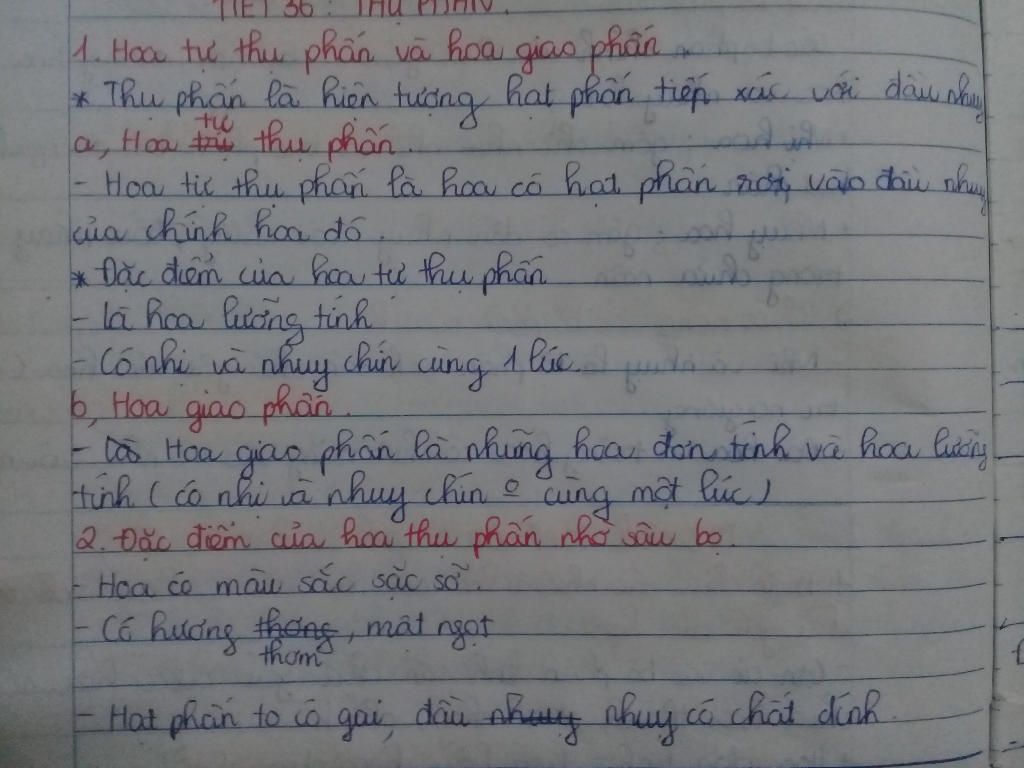 TIẾT 36: THỤ PHẤN.
1. Hoa tự thụ phấn và hoa giao phấn
* Thụ phấn là hiện tượng hạt phấn tiếp xúc với đầu nhụy
tự
a, Hoa thụ phấn.
- Hoa tự thụ phấn là hoa có hạt phấn rơi vào đầu nhụy
của chính hoa đó
* Đặc điểm của hoa tự thụ phấn
- Là hoa lưỡng tính
- Có nhị và nhụy chín cùng 1 lúc.
b, Hoa giao phấn.
- Hoa giao phấn là những hoa đơn tính và hoa lưỡng
tính (có nhị và nhụy chín o cùng một lúc)
2. Đặc điểm của hoa thụ phấn nhờ sâu bọ.
- Hoa có màu sắc sặc sỡ.
- Có hương thơng, mật ngọt
thơm
- Hạt phấn to có gai, đầu nhụy nhụy có chất dính.